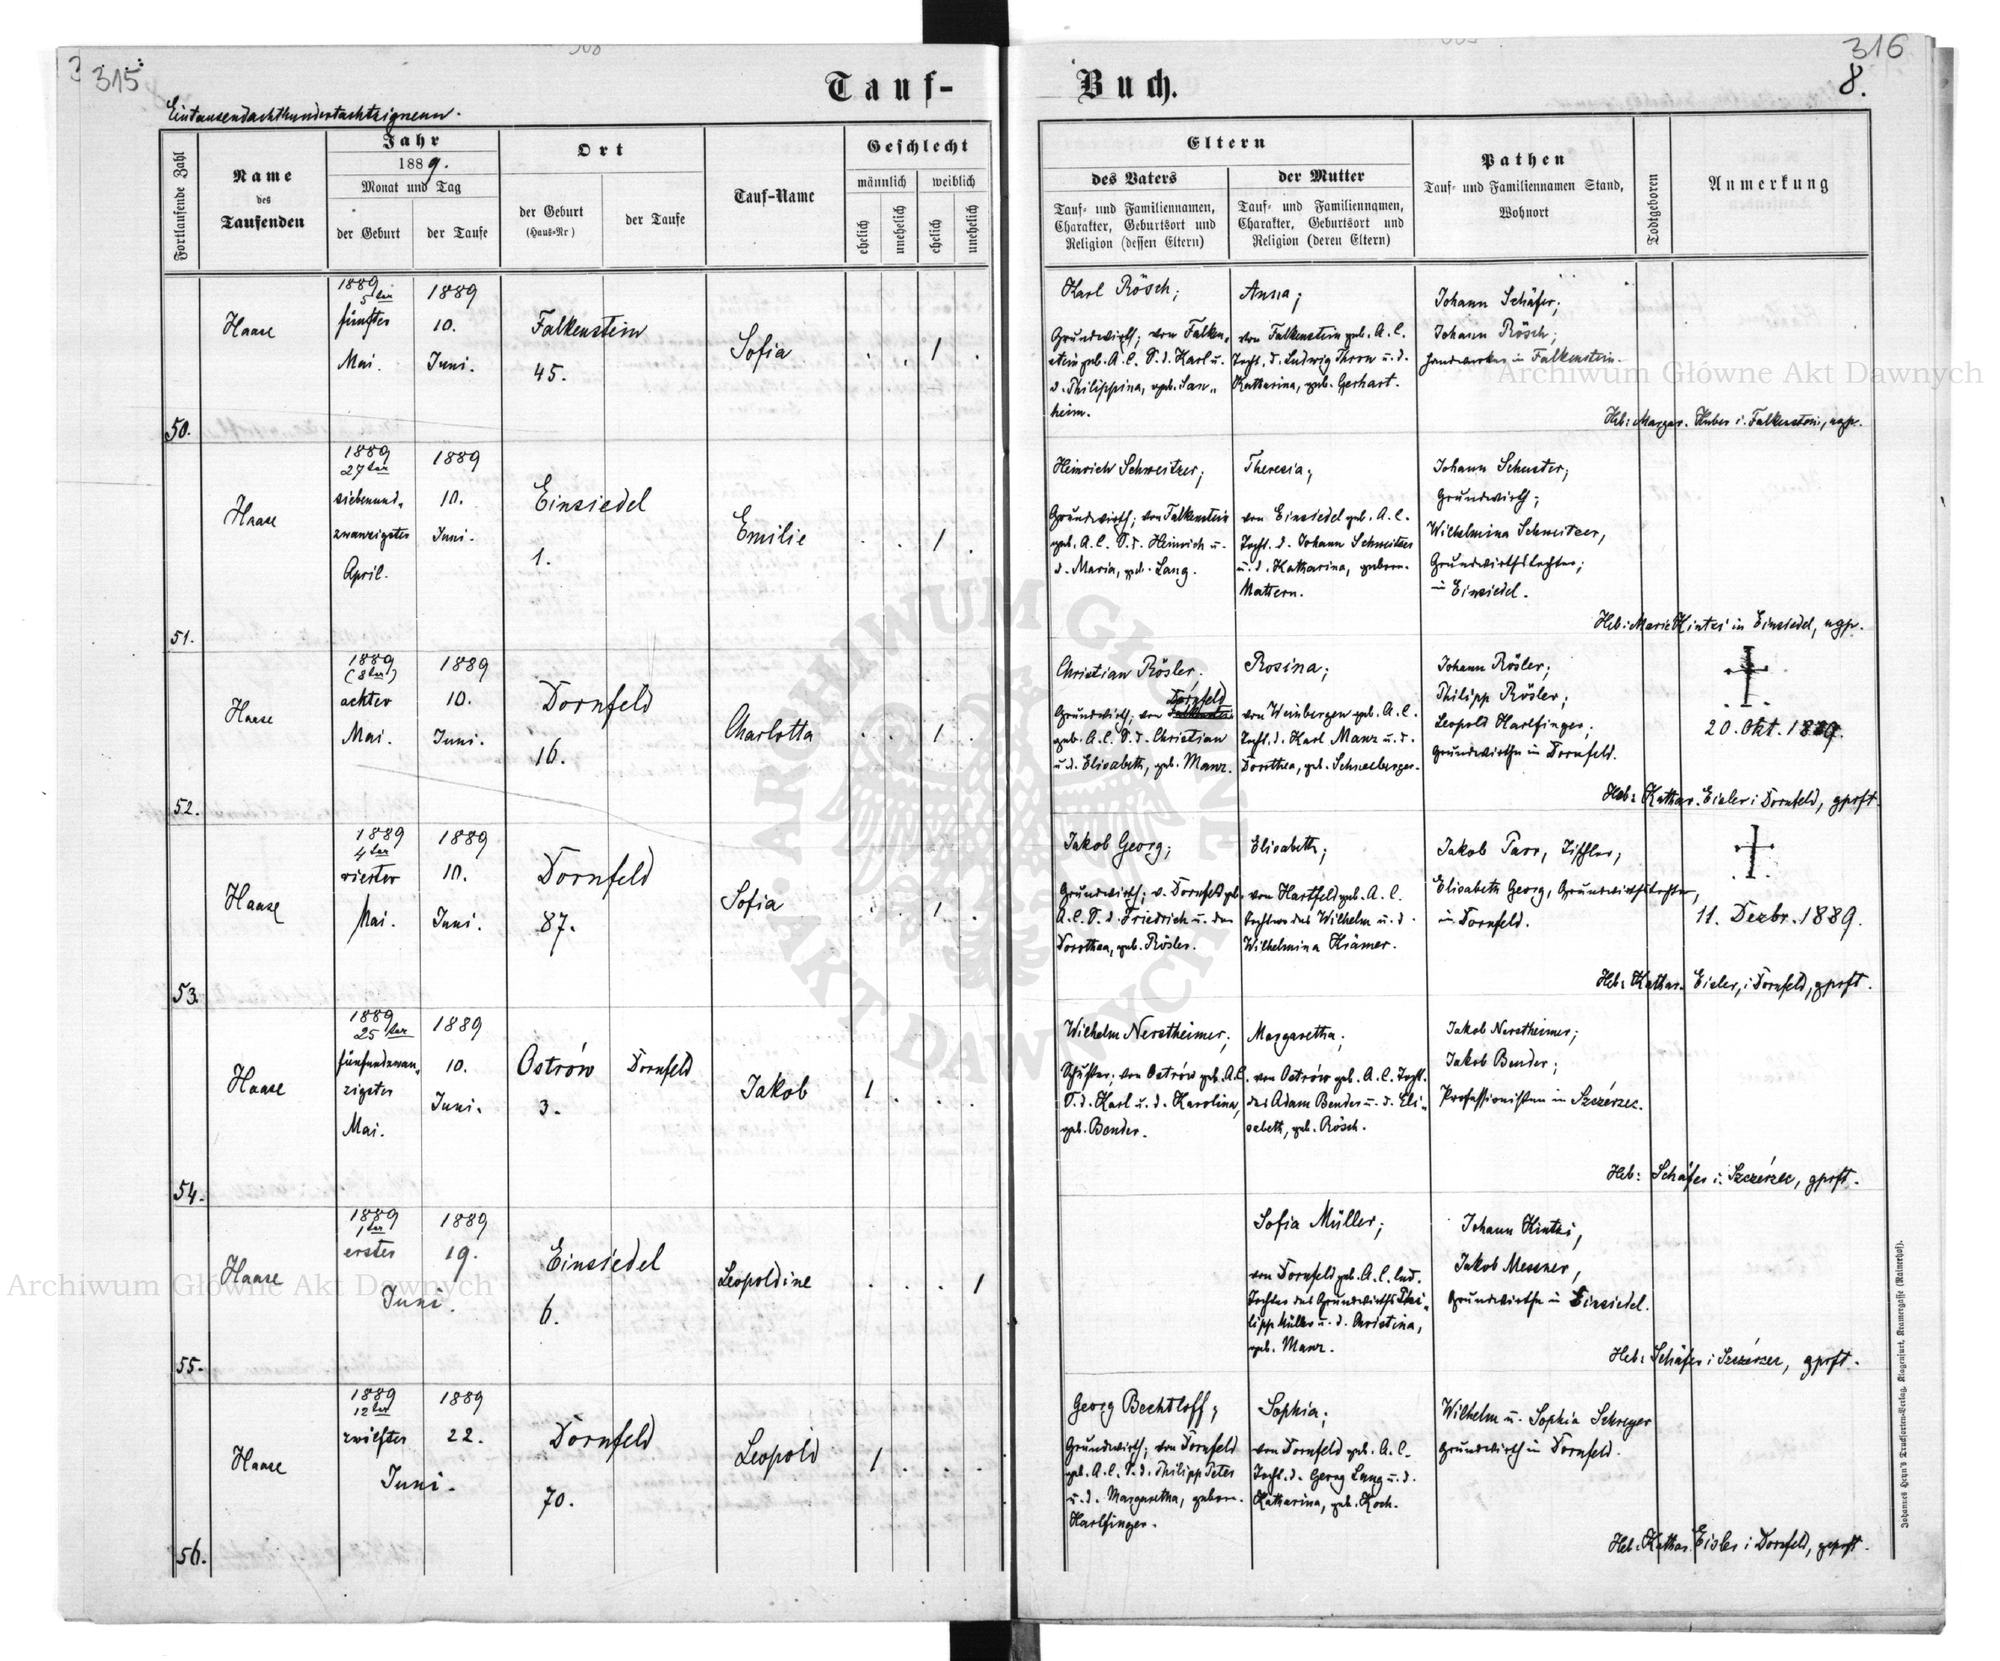 315
316
8.
Tauf-
Buch.
Eintausendachthundertachtzigneun.
Fortlaufende Zahl
Name
des
Taufenden
Jahr
1889.
Monat und Tag
der Geburt
der Taufe
Ort
der Geburt
(Haus-Nr)
der Taufe
Tauf-Name
Geschlecht
männlich
weiblich
ehelich
unehelich
ehelich
unehelich
Eltern
des Vaters
Tauf- und Familiennamen,
Charakter, Geburtsort und
Religion (dessen Eltern)
der Mutter
Tauf- und Familiennamen,
Charakter, Geburtsort und
Religion (deren Eltern)
Pathen
Tauf- und Familiennamen Stand,
Wohnort
Todtgeboren
Anmerkung
50.
Haase
1889
5ter
fünfter
Mai.
1889
10.
Juni.
Falkenstein
45.
Sofia
1
Karl Rösch;
Grundwirth; von Falken-
stein geb. A. C. S. d. Karl u.
d. Philippina, geb. San-
heim.
Anna;
von Falkenstein geb. A. C.
Tocht. d. Ludwig Thron u. d.
Katharina, geb. Gerhart.
Johann Schäfer;
Johann Rösch;
Handwerker in Falkenstein.
Heb: Margar. Huber i. Falkenstein, ugpr.
51.
Haase
1889
27ter
siebenund-
zwanzigster
April.
1889
10.
Juni.
Einsiedel
1.
Emilie
1
Heinrich Schweitzer;
Grundwirth; von Falkenstein
geb. A. C. S. d. Heinrich u.
d. Maria, geb. Lang.
Theresia;
von Einsiedel geb. A. C.
Tocht. d. Johann Schweitzer
u. d. Katharina, geborn.
Mattern.
Johann Schuster;
Grundwirth;
Wilhelmina Schweitzer,
Grundwirthstochter;
in Einsiedel.
Heb: Marie Kintzi in Einsiedel, ugpr.
52.
Haase
1889
(8ter)
achter
Mai.
1889
10.
Juni.
Dornfeld
16.
Charlotta
1
Christian Rösler;
Dornfeld
Grundwirth; von Falkenstein
geb. A. C. S. d. Christian
u. d. Elisabeth, geb. Manz.
Rosina;
von Weinbergen geb. A. C.
Tocht. d. Karl Manz u. d.
Dorothea, geb. Schneeberger.
Johann Rösler;
Philipp Rösler;
Leopold Harlfinger;
Grundwirthe in Dornfeld.
20. Okt. 1889.
Heb: Kathar. Eisler i Dornfeld, gprft.
53.
Haase
1889
4ter
vierter
Mai.
1889
10.
Juni.
Dornfeld
87.
Sofia
1
Jakob Georg;
Grundwirth; v. Dornfeld geb.
A. C. S. d. Friedrich u. der
Dorothea, geb. Rösler.
Elisabeth;
von Hartfeld geb. A. C.
Tochter des Wilhelm u. d.
Wilhelmina Krämer.
Jakob Parr, Tischler;
Elisabeth Georg, Grundwirthstochter,
in Dornfeld.
11. Dezbr. 1889.
Heb: Kathar. Eisler, i Dornfeld, gprft.
54.
Haase
1889
25ter
fünfundzwan-
zigster
Mai.
1889
10.
Juni.
Ostrów
3.
Dornfeld
Jakob
1
Wilhelm Nerstheimer;
Schuster; von Ostrów geb. A. C.
S. d. Karl u. d. Karolina,
geb. Bender.
Margaretha;
von Ostrów geb. A. C. Tocht.
des Adam Bender u. d. Eli-
sabeth, geb. Rösch.
Jakob Nerstheimer;
Jakob Bender;
Professionisten in Szczérzec.
Heb: Schäfer i. Szczérzec, gprft.
55.
Haase
1889
1ter
erster
Juni.
1889
19.
Einsiedel
6.
Leopoldine
1
Sofia Müller;
von Dornfeld geb. A. C. led.
Tochter des Grundwirths Phi-
lipp Müller u. d. Christina,
geb. Manz.
Johann Kintzi,
Jakob Messner,
Grundwirthe in Einsiedel.
Heb: Schäfer i Szczérzec, gprft.
56.
Haase
1889
12ter
zwölfter
Juni.
1889
22.
Dornfeld
70.
Leopold
1
Georg Bechtloff;
Grundwirth; von Dornfeld
geb. A. C. S. d. Philipp Peter
u. d. Margaretha, geborn.
Harlfinger.
Sophia;
von Dornfeld geb. A. C.
Tocht. d. Georg Lang u. d.
Katharina, geb. Koch.
Wilhelm u. Sophia Schreyer
Grundwirth in Dornfeld.
Heb: Kathar. Eisler i Dornfeld, geprft.
Johannes Heyn's Drucksorten-Verlag, Klagenfurt, Kramergasse (Rainerhof).
Archiwum Główne Akt Dawnych
Archiwum Główne Akt Dawnych
ARCHIWUM GŁÓWNE AKT DAWNYCH